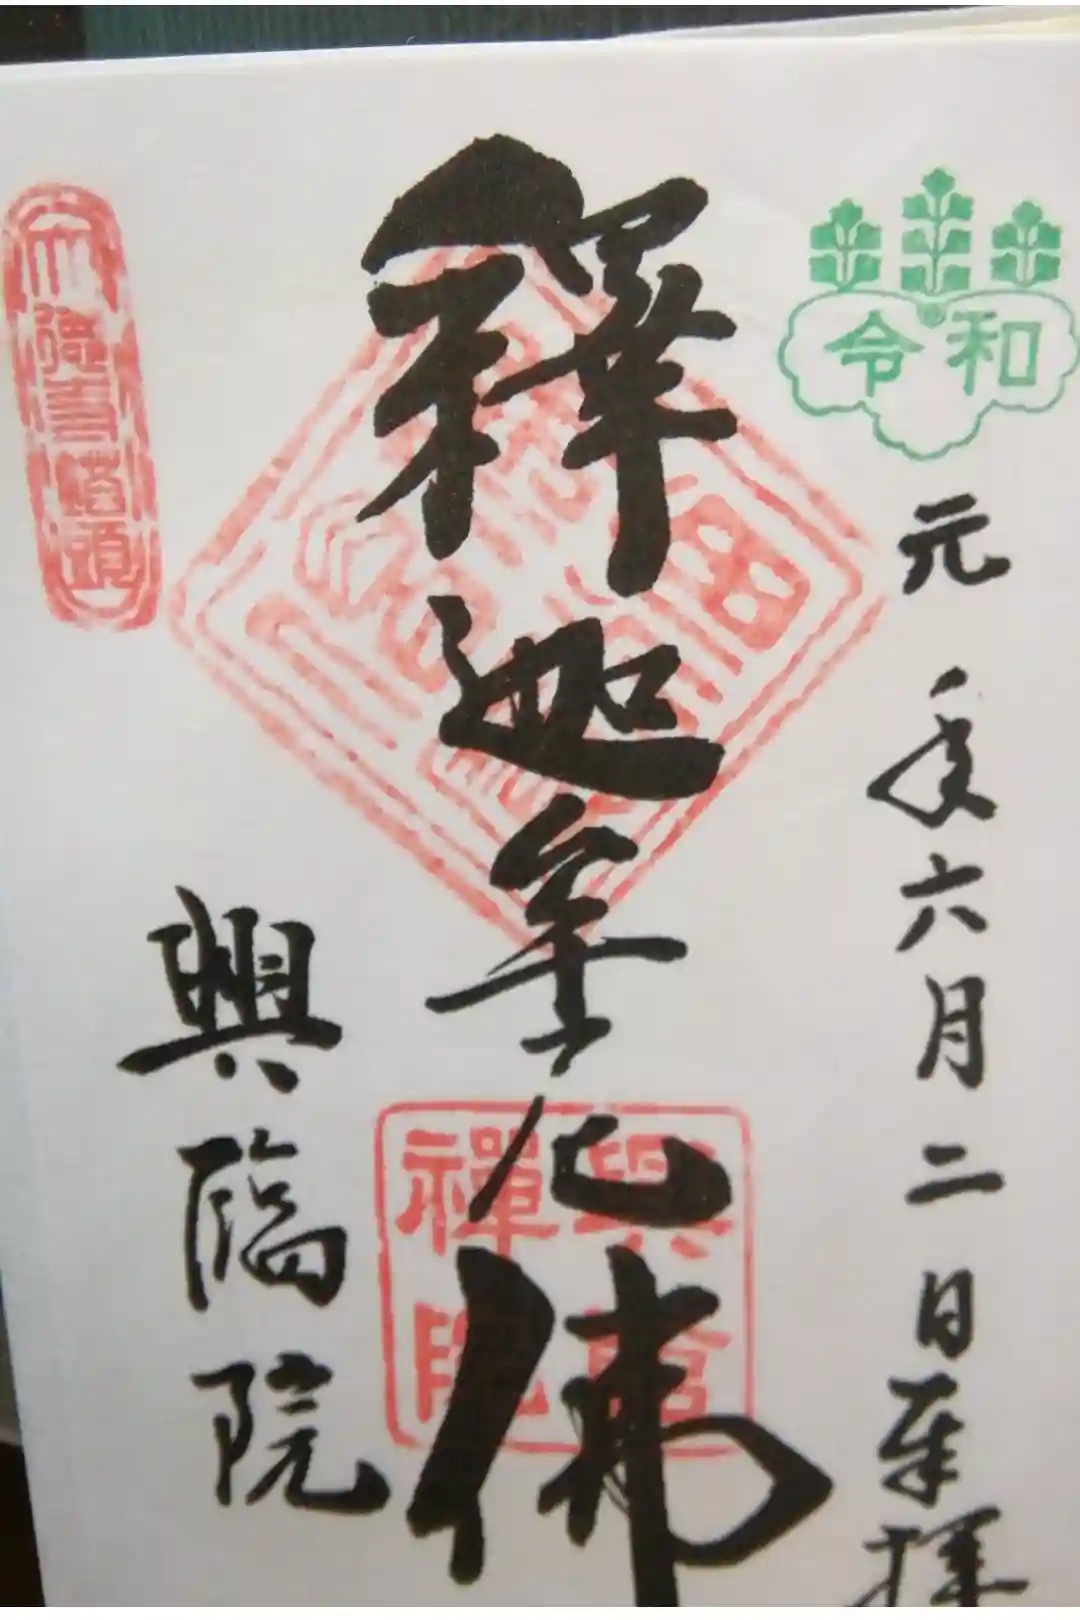 令和
元年六月二日奉拝
釋迦牟尼佛
興臨院
大徳寺塔頭
興臨
禅院